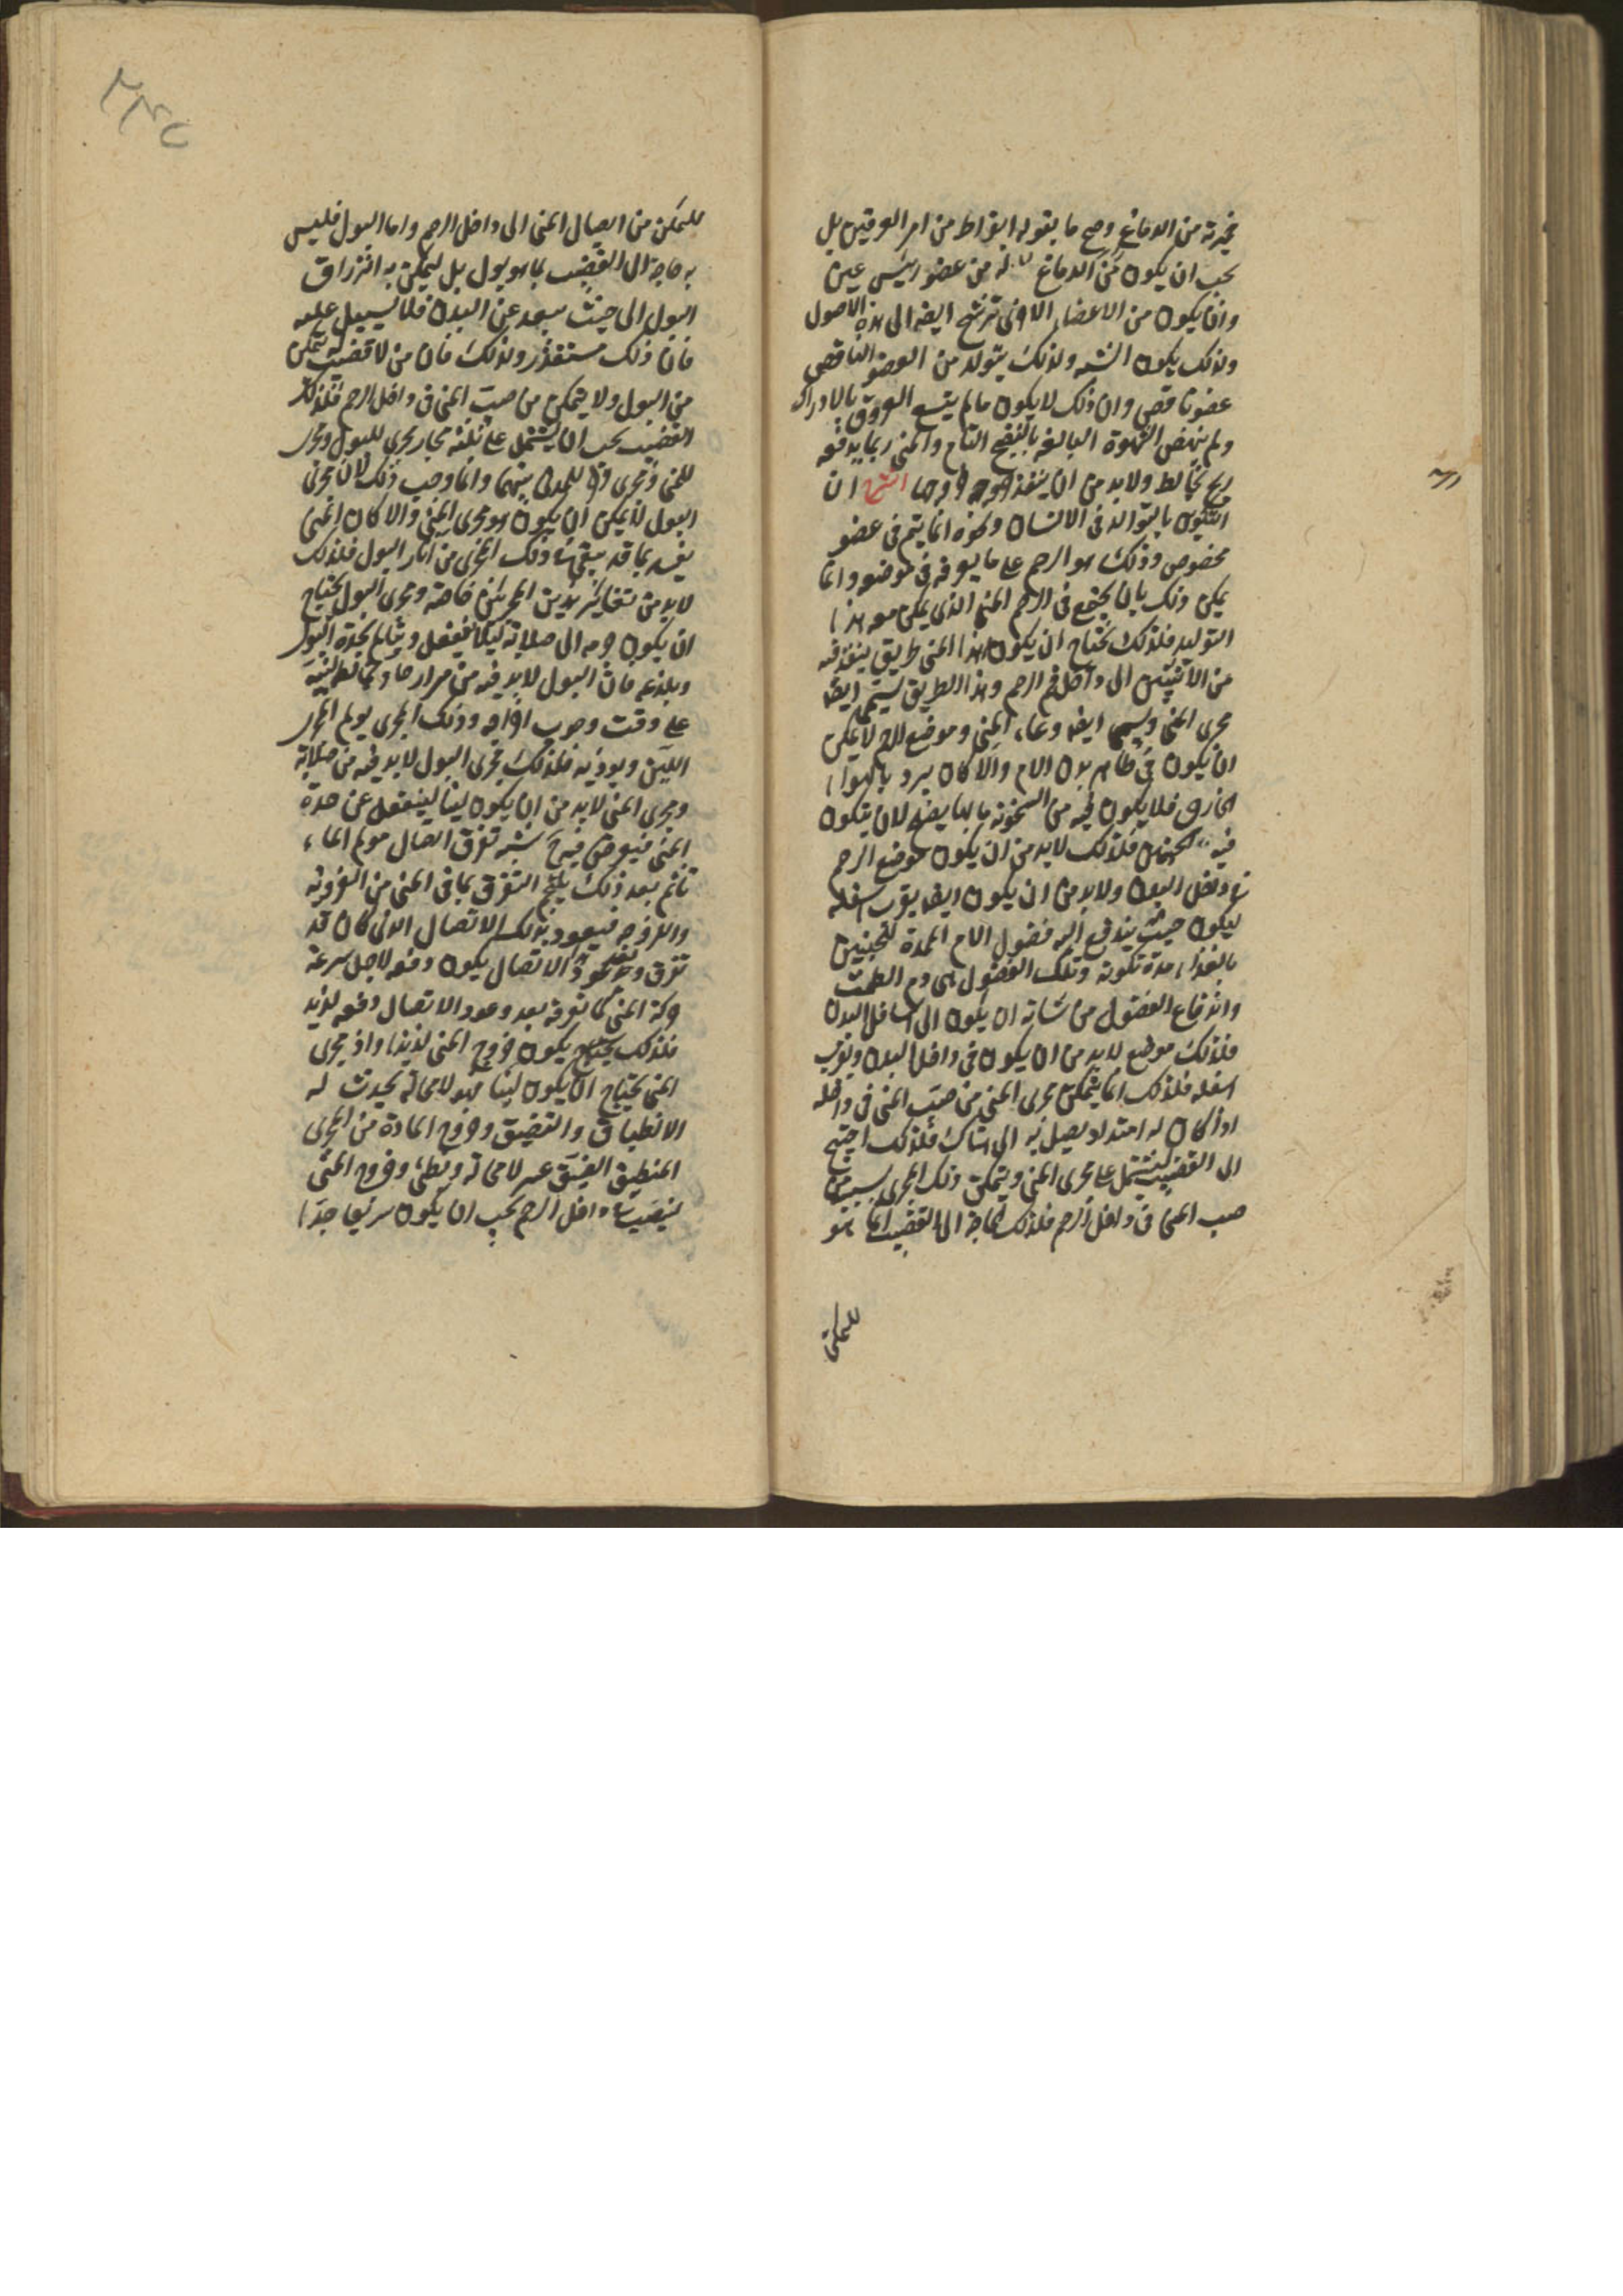 خميرته من الدماغ وصح ما يقوله ابقراط من امر العرقين بل
يجب ان يكون من الدماغ له من عضو رئيس عين
وان يكون من الاعضاء الاخرى ترشح ايضا الى هذه الاصول
وبذلك يكون الشبه ولذلك يتولد من العضو الناقص
عضو ناقص وان ذلك لا يكون ما لم يتسع العروق بالادراك
ولم ينهض الشهوة البالغة بالنضج التام والمنى ربما يدفعه
ريح تخالط ولابد من ان ينفذ خروجها الشرح ان
التكون بالتوالد فى الانسان ونحوه انما يتم فى عضو
مخصوص وذلك هو الرحم على ما يعرفه فى موضعه وانما
يمكن ذلك بان يجتمع فى الرحم المنى الذى يمكن معه هذا
التوليد فلذلك تحتاج ان يكون لهذا المنى طريق ينفذ فيه
من الانثيين الى داخل الرحم وهذا الطريق يسمى ايضا
مجرى المنى ويسمى ايضا وعاء المنى وموضع الرحم لا يمكن
ان يكون فى ظاهر بدن الام والا كان يبرد بالهواء
الخارق فلا يكون فيه من السخونة ما بها يصلح لان يتكون
فيه الجنين فلذلك لابد من ان يكون موضع الرحم
فى داخل البدن ولابد من ان يكون ايضا بقرب اسفله
ليكون حيث يندفع اليه فضول الام الممدة للجنين
بالغذاء مدة تكونه وتلك الفضول هى دم الطمث
واندفاع الفضول من شانه ان يكون الى اسافل البدن
فلذلك موضع لابد من ان يكون فى داخل البدن وبقرب
اسفله فلذلك انما يتمكن مجرى المنى من صب المنى فى داخله
اذا كان له امتداد يصل به الى هناك فلذلك احتيج
الى القضيب ليشتمل على مجرى المنى ويتمكن ذلك المجرى بسببه من
صب المنى فى داخل الرحم فلذلك الحاجة الى القضيب انما هو
للتمكن
للتمكن من ايصال المنى الى داخل الرحم واما البول فليس
به حاجة الى القضيب بما هو بول بل ليمكن به انزراق
البول الى حيث يبعد عن البدن فلا يسيل عليه
فان ذلك مستقذر ولذلك فان من لا قضيب له يتمكن
من البول ولا يتمكن من صب المنى فى داخل الرحم فلذلك
القضيب يجب ان يشتمل على ثلثة مجار مجرى للبول ومجرى
للمنى ومجرى للمدى بينهما وانما وجب ذلك لان مجرى
البول لا يمكن ان يكون هو مجرى المنى والا كان المنى
يفسد بما قد يبقى فى ذلك المجرى من اثار البول فلذلك
لابد من تغاير بذين المجريين خاصة ومجرى البول يحتاج
ان يكون جرمه الى صلابة ليكلا ينفعل ويتالم بحدة البول
وبلذعه فان البول لابد فيه من مرار حاد يخالطه لينبه
على وقت وجوب اخراجه وذلك المجرى يولم المجرى
اللين ويوذيه فلذلك مجرى البول لابد فيه من صلابة
ومجرى المنى لابد من ان يكون لينا لينفعل عن حدة
المنى فيعرض فيه شبه تفرق اتصال مولم الماء
ثم بعد ذلك يلتحم التفرق بما فى المنى من الغروية
واللزوجه فيعود بذلك الاتصال الذى كان قد
تفرق وعود الاتصال يكون دفعه لاجل سرعة
حركة المنى كما تعرفه بعد وعود الاتصال دفعه لذيذ
فلذلك يكون خروج المنى لذيذا واذ مجرى
المنى يحتاج ان يكون لينا فهو لا محالة يحدث له
الانطباق والتضيق وخروج المادة من المجرى
المنطبق الضيق عسر لا محالة وبطئ وخروج المنى
لينصب فى داخل الرحم يجب ان يكون سريعا جدا